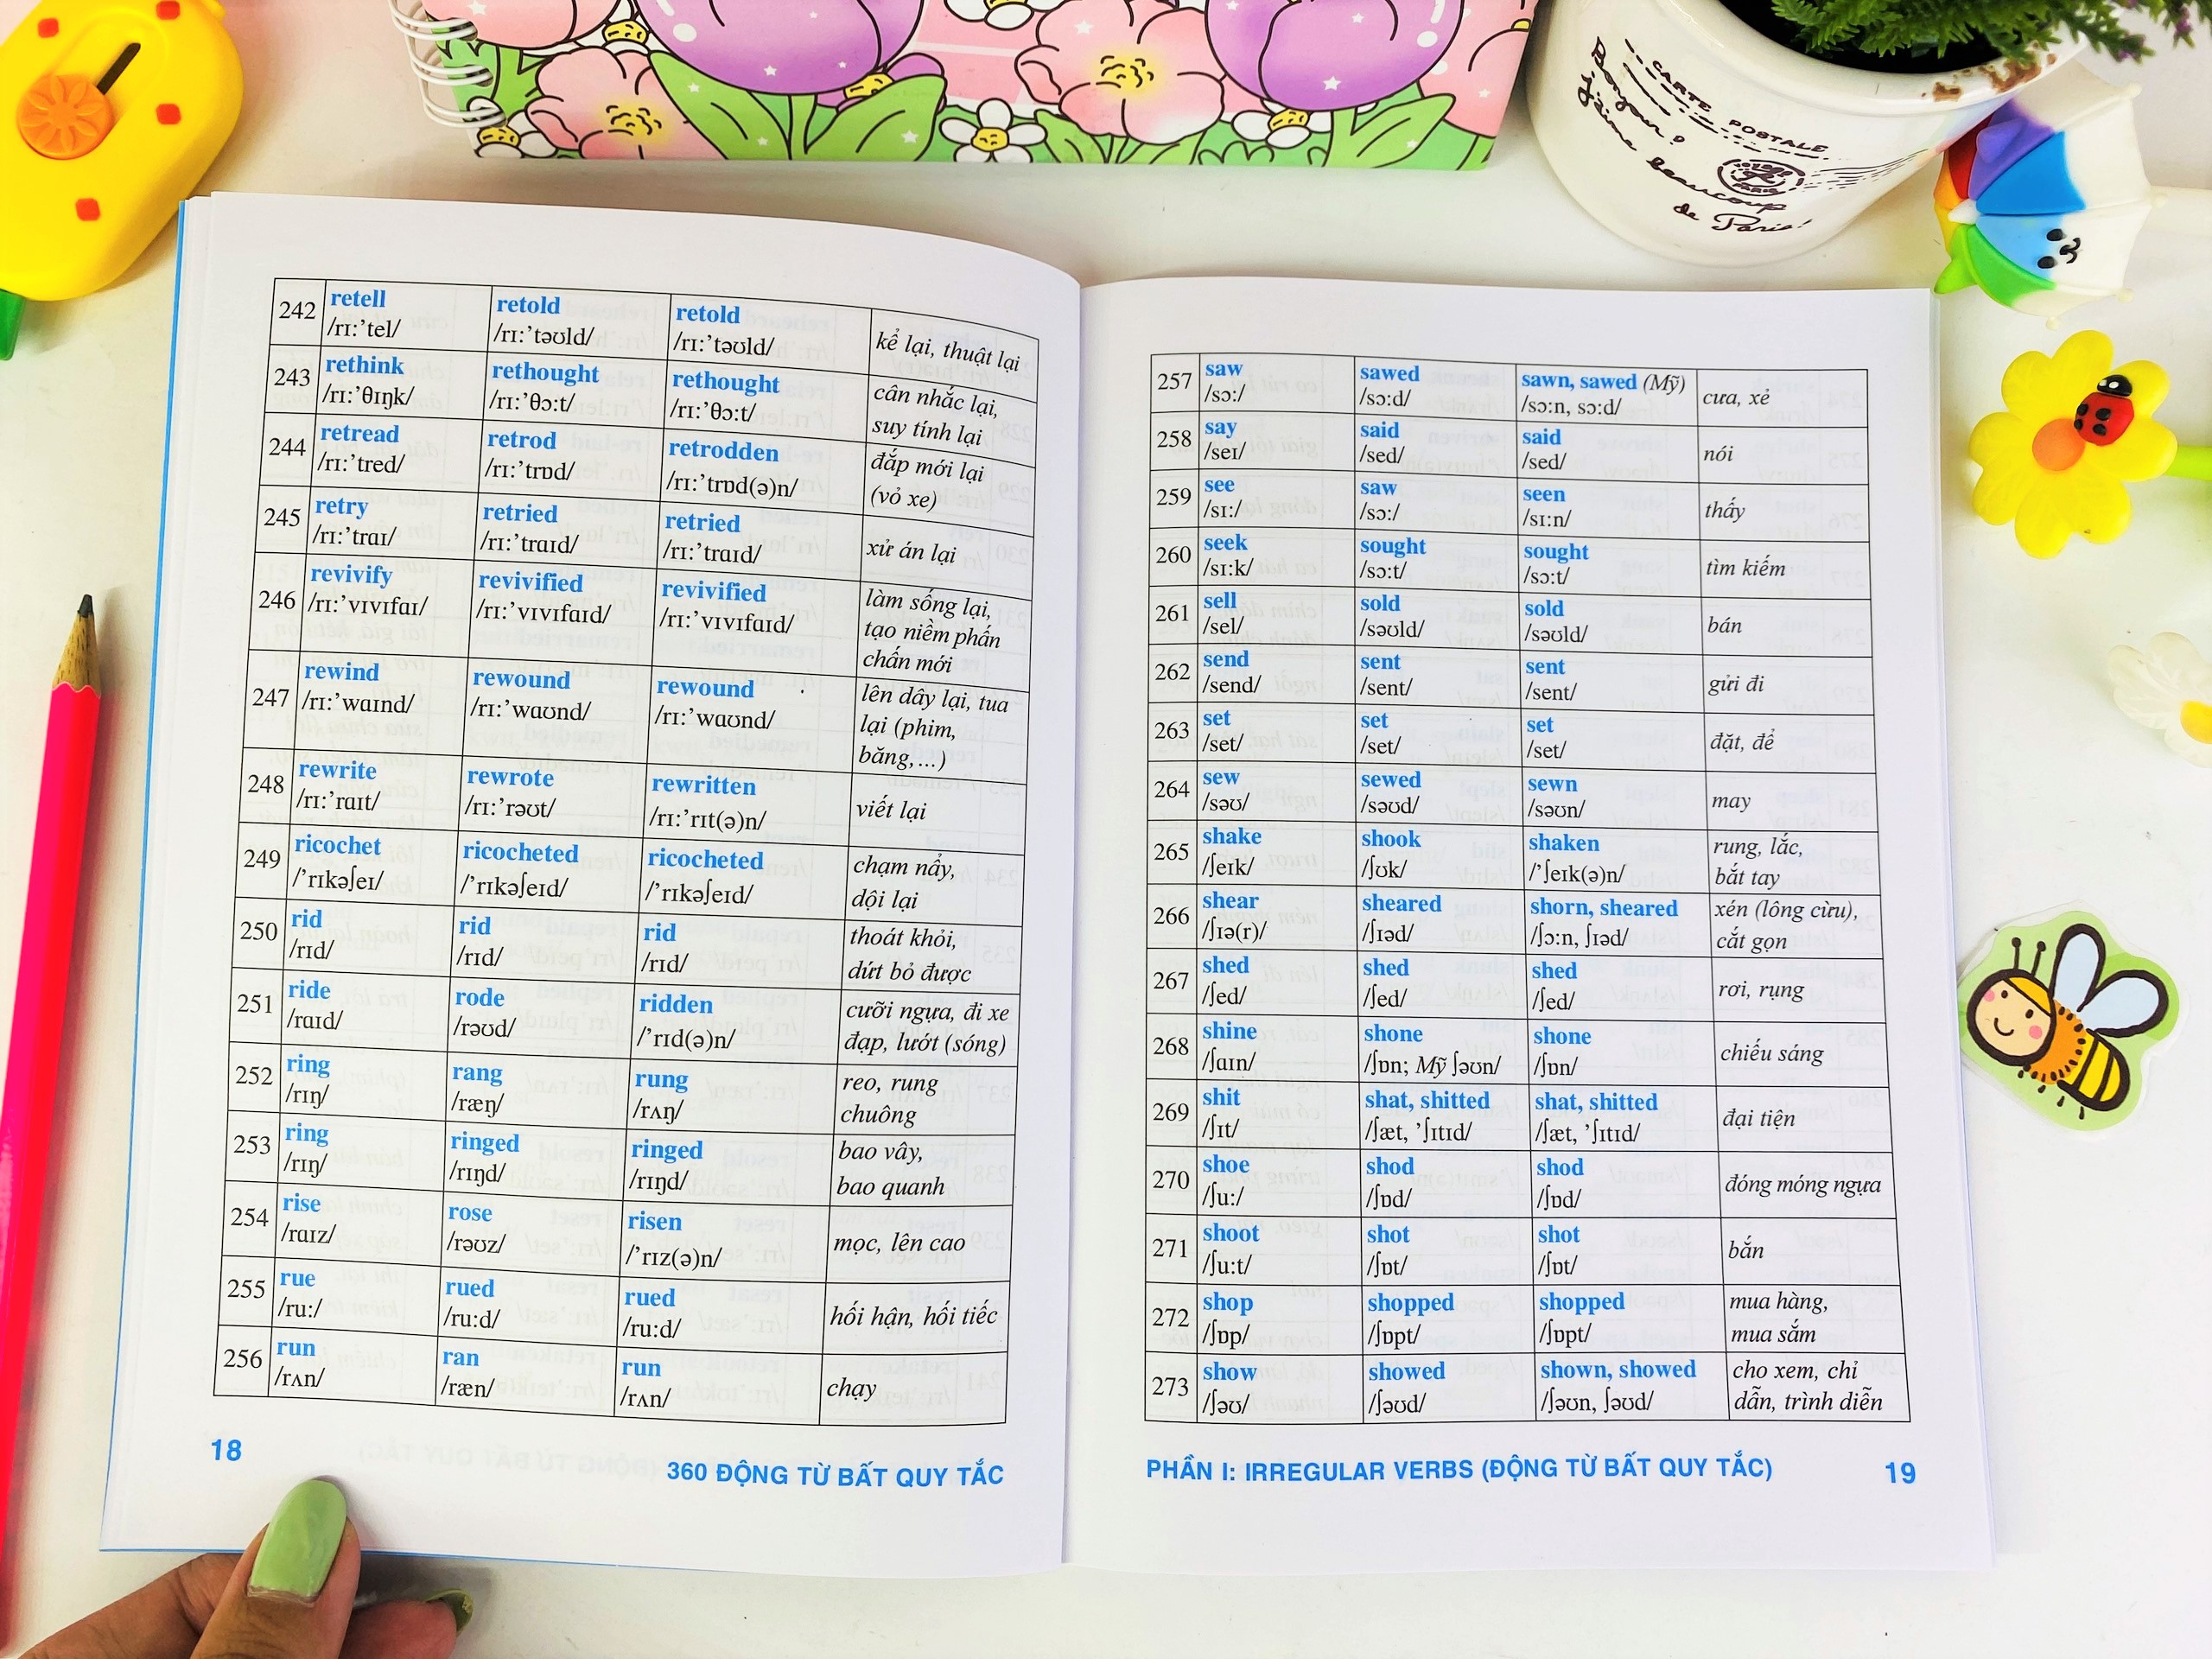 CARTE
POSTALE
Bonjour ?
j'aime beaucoup
de Paris!
242 retell retold retold kể lại, thuật lại
/rɪ:’tel/ /rɪ:’təʊld/ /rɪ:’təʊld/
243 rethink rethought rethought cân nhắc lại,
/rɪ:’θɪŋk/ /rɪ:’θɔ:t/ /rɪ:’θɔ:t/ suy tính lại
244 retread retrod retrodden đắp mới lại
/rɪ:’tred/ /rɪ:’trɒd/ /rɪ:’trɒd(ə)n/ (vỏ xe)
245 retry retried retried xử án lại
/rɪ:’traɪ/ /rɪ:’traɪd/ /rɪ:’traɪd/
246 revivify revivified revivified làm sống lại,
/rɪ:’vɪvɪfaɪ/ /rɪ:’vɪvɪfaɪd/ /rɪ:’vɪvɪfaɪd/ tạo niềm phấn
chấn mới
247 rewind rewound rewound lên dây lại, tua
/rɪ:’waɪnd/ /rɪ:’waʊnd/ /rɪ:’waʊnd/ lại (phim,
băng,...)
248 rewrite rewrote rewritten viết lại
/rɪ:’raɪt/ /rɪ:’rəʊt/ /rɪ:’rɪt(ə)n/
249 ricochet ricocheted ricocheted chạm nẩy,
/’rɪkəʃeɪ/ /’rɪkəʃeɪd/ /’rɪkəʃeɪd/ dội lại
250 rid rid rid thoát khỏi,
/rɪd/ /rɪd/ /rɪd/ dứt bỏ được
251 ride rode ridden cưỡi ngựa, đi xe
/raɪd/ /rəʊd/ /’rɪd(ə)n/ đạp, lướt (sóng)
252 ring rang rung reo, rung
/rɪŋ/ /ræŋ/ /rʌŋ/ chuông
253 ring ringed ringed bao vây,
/rɪŋ/ /rɪŋd/ /rɪŋd/ bao quanh
254 rise rose risen mọc, lên cao
/raɪz/ /rəʊz/ /’rɪz(ə)n/
255 rue rued rued hối hận, hối tiếc
/ru:/ /ru:d/ /ru:d/
256 run ran run chạy
/rʌn/ /ræn/ /rʌn/
18 360 ĐỘNG TỪ BẤT QUY TẮC
257 saw sawed sawn, sawed (Mỹ) cưa, xẻ
/sɔ:/ /sɔ:d/ /sɔ:n, sɔ:d/
258 say said said nói
/seɪ/ /sed/ /sed/
259 see saw seen thấy
/sɪ:/ /sɔ:/ /sɪ:n/
260 seek sought sought tìm kiếm
/sɪ:k/ /sɔ:t/ /sɔ:t/
261 sell sold sold bán
/sel/ /səʊld/ /səʊld/
262 send sent sent gửi đi
/send/ /sent/ /sent/
263 set set set đặt, để
/set/ /set/ /set/
264 sew sewed sewn may
/səʊ/ /səʊd/ /səʊn/
265 shake shook shaken rung, lắc,
/ʃeɪk/ /ʃʊk/ /’ʃeɪk(ə)n/ bắt tay
266 shear sheared shorn, sheared xén (lông cừu),
/ʃɪə(r)/ /ʃɪəd/ /ʃɔ:n, ʃɪəd/ cắt gọn
267 shed shed shed rơi, rụng
/ʃed/ /ʃed/ /ʃed/
268 shine shone shone chiếu sáng
/ʃaɪn/ /ʃɒn; Mỹ ʃəʊn/ /ʃɒn/
269 shit shat, shitted shat, shitted đại tiện
/ʃɪt/ /ʃæt, ’ʃɪtɪd/ /ʃæt, ’ʃɪtɪd/
270 shoe shod shod đóng móng ngựa
/ʃu:/ /ʃɒd/ /ʃɒd/
271 shoot shot shot bắn
/ʃu:t/ /ʃɒt/ /ʃɒt/
272 shop shopped shopped mua hàng,
/ʃɒp/ /ʃɒpt/ /ʃɒpt/ mua sắm
273 show showed shown, showed cho xem, chỉ
/ʃəʊ/ /ʃəʊd/ /ʃəʊn, ʃəʊd/ dẫn, trình diễn
PHẦN I: IRREGULAR VERBS (ĐỘNG TỪ BẤT QUY TẮC) 19